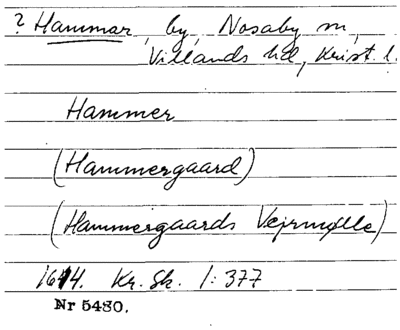 ? Hammar, by, Nosaby sn,
Villands hd, Krist. l.
Hammer
(Hammergaard)
(Hammergaards Vejrmølle)
1644. Kr. Sk. 1:377
Nr 5480.